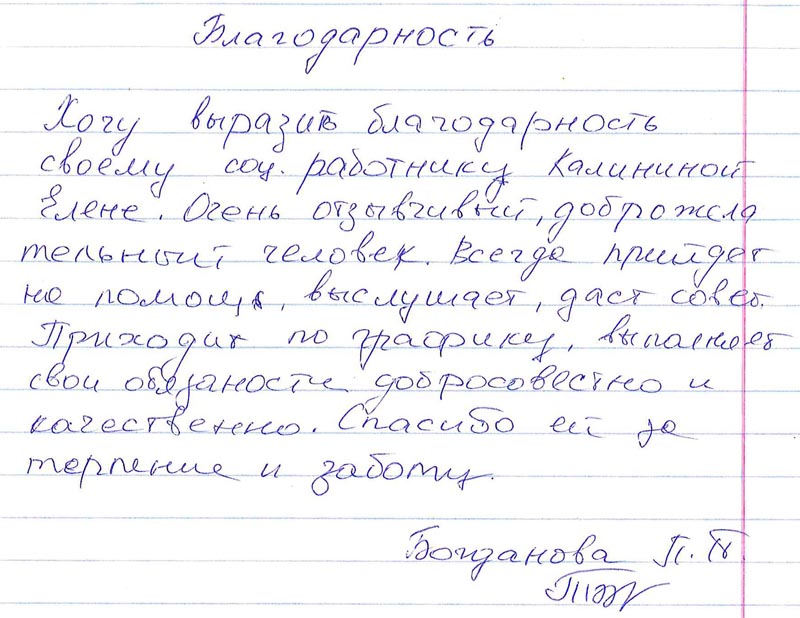 Благодарность
Хочу выразить благодарность
своему соц. работнику Калининой
Елене. Очень отзывчивый, доброжела
тельный человек. Всегда прийдет
на помощь, выслушает, даст совет.
Приходит по графику, выполняет
свои обязаности добросовестно и
качественно. Спасибо ей за
терпение и заботу.
Богданова П.П.